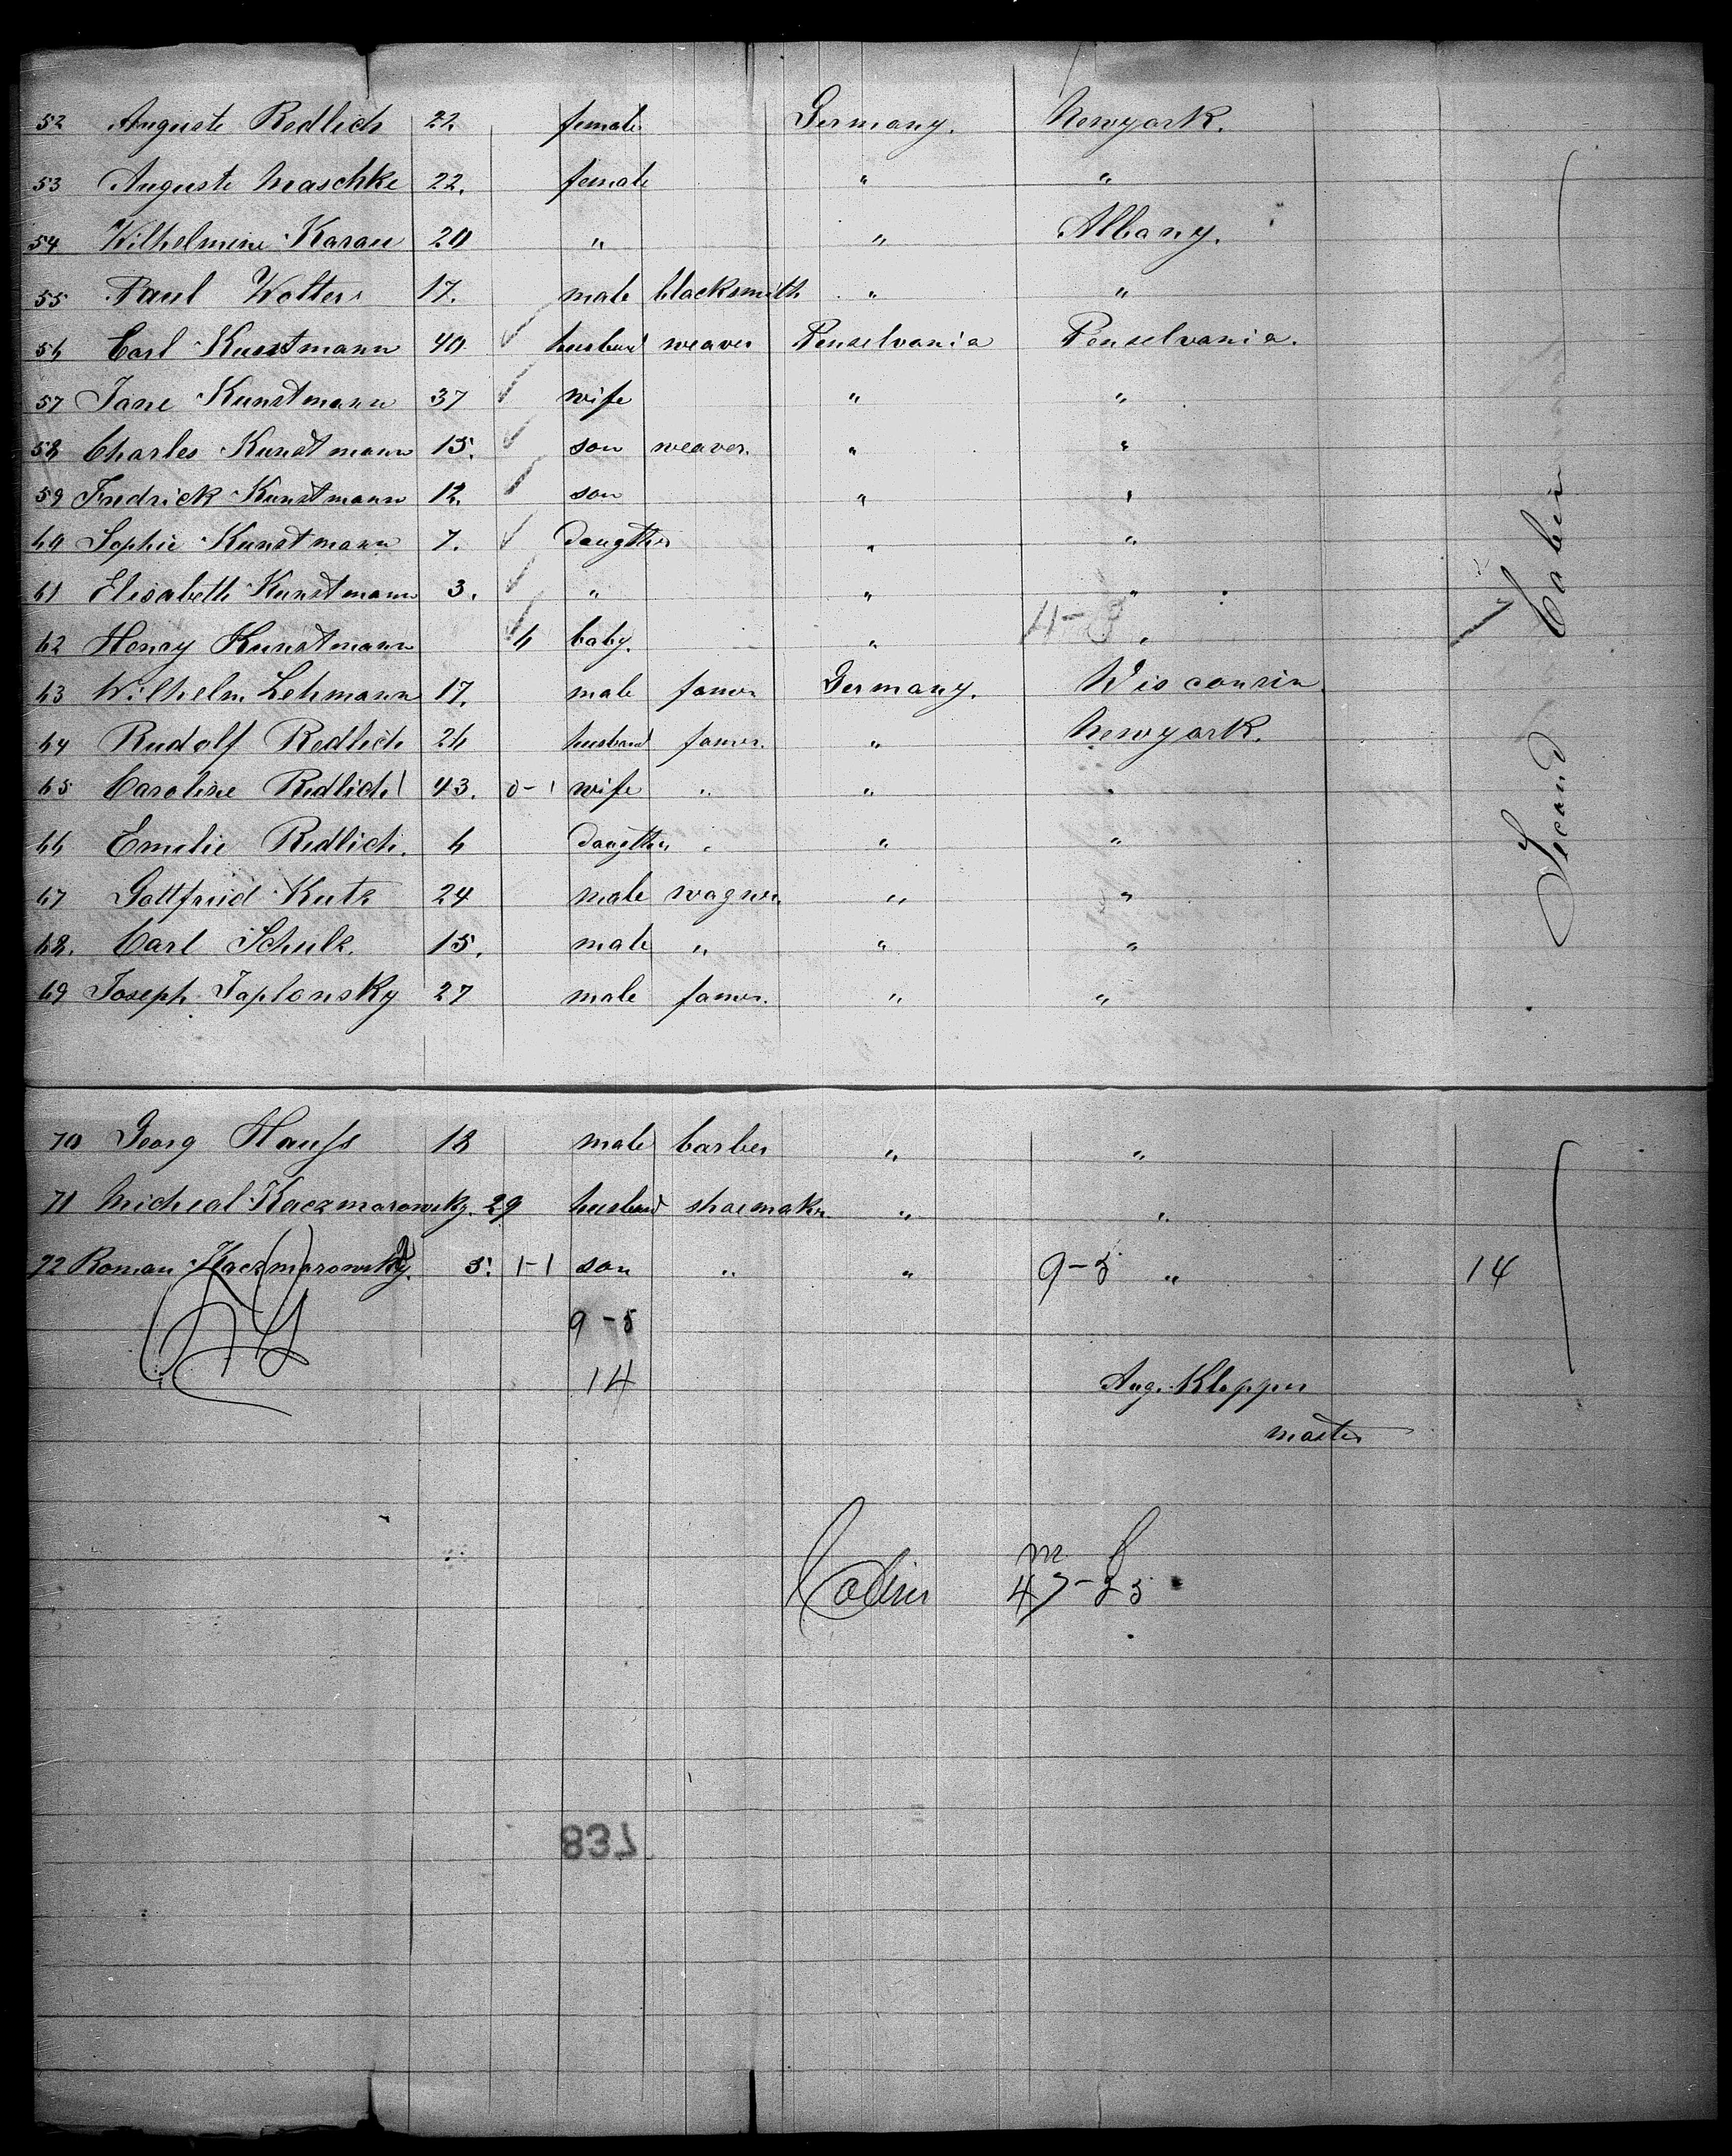 52 Auguste Redlich 22. female Germany. Newyork.
53 Auguste Maschke 22. female " "
54 Wilhelmine Karau 20 " " Albany.
55 Paul Wolter 17. male blacksmith " "
56 Carl Kunstmann 40. husband weaver Penselvania Penselvania.
57 Jane Kunstmann 37 wife " "
58 Charles Kunstmann 15. son weaver. " "
59 Fredrick Kunstmann 12. son " "
60 Sophie Kunstmann 7. daugther " "
61 Elisabeth Kunstmann 3. " " "
62 Henry Kunstmann 6 baby. " 4-3 "
63 Wilhelm Lehmann 17. male famer Germany. Wisconsin
64 Rudolf Redlich 26 husband famer. " Newyork.
65 Caroline Redlich 43. 0-1 wife " " "
66 Emilie Redlich. 6 daugther " " "
67 Gottfried Kutz 24 male wagner " "
68. Carl Schulz. 15. male " " "
69 Joseph Japlonsky 27 male famer. " "
Second Cabin
70 Georg Hauss 18 male barber " "
71 Micheal Kaczmarowsky. 29 husband shoemaker " "
72 Roman Kaczmarowsky. 5. 1-1 son " " 9-5 " 14
9-5
14
Aug. Klopper
master
m f
Cabin 47-25
837